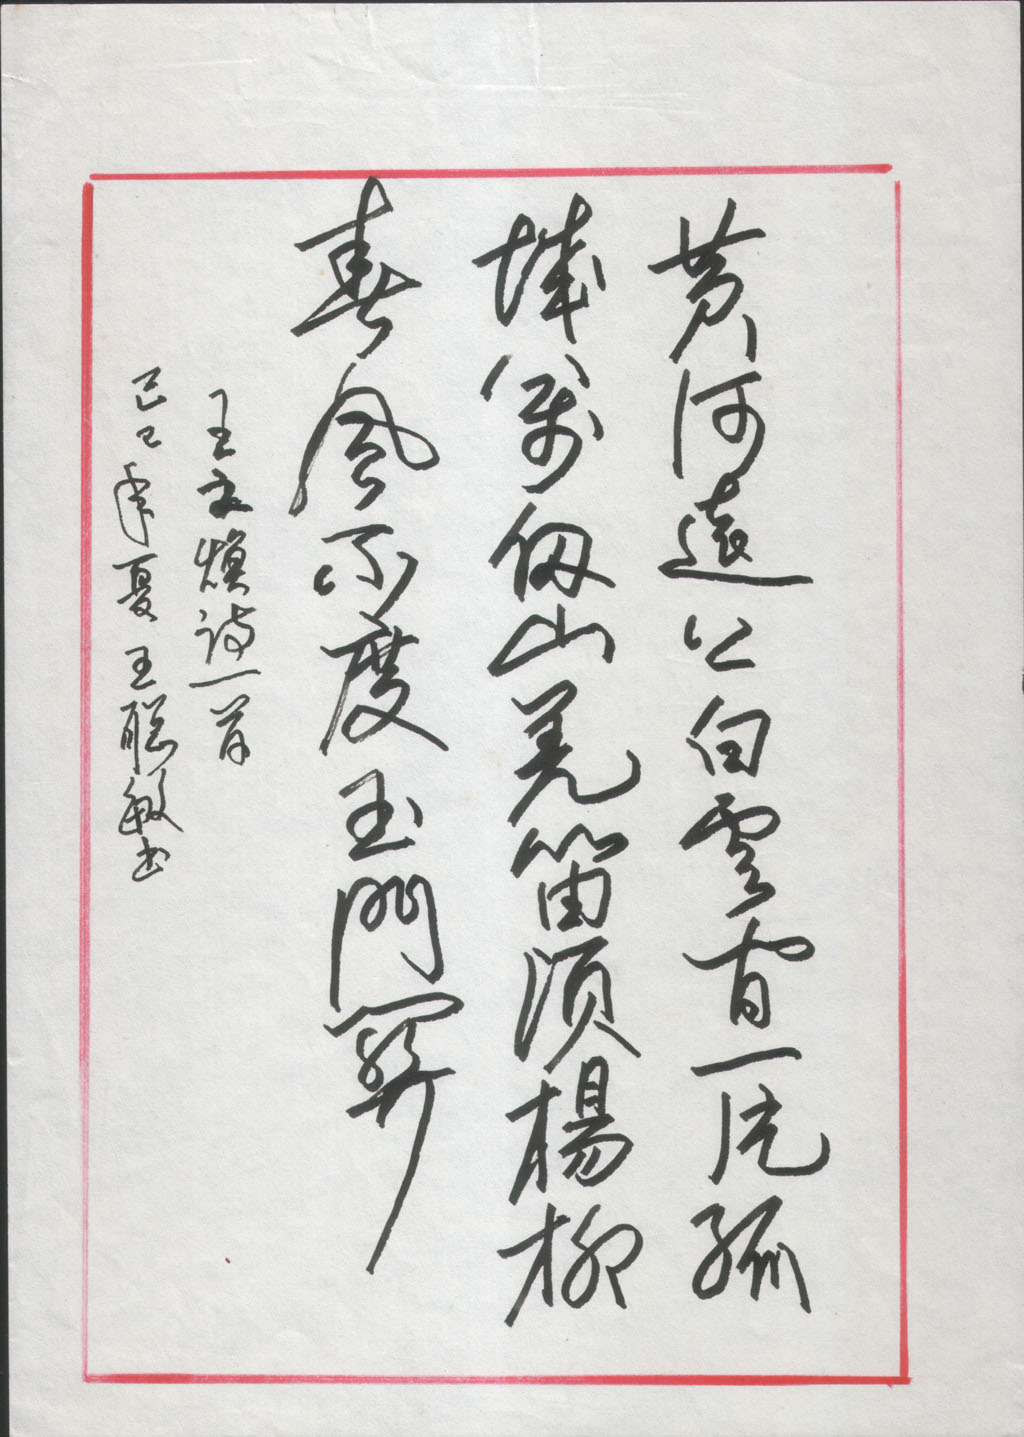 黄河遠上白雲間一片孤
城萬仞山羌笛須楊柳
春風不度玉門關
王之煥詩一首
己巳年夏王聪敏书